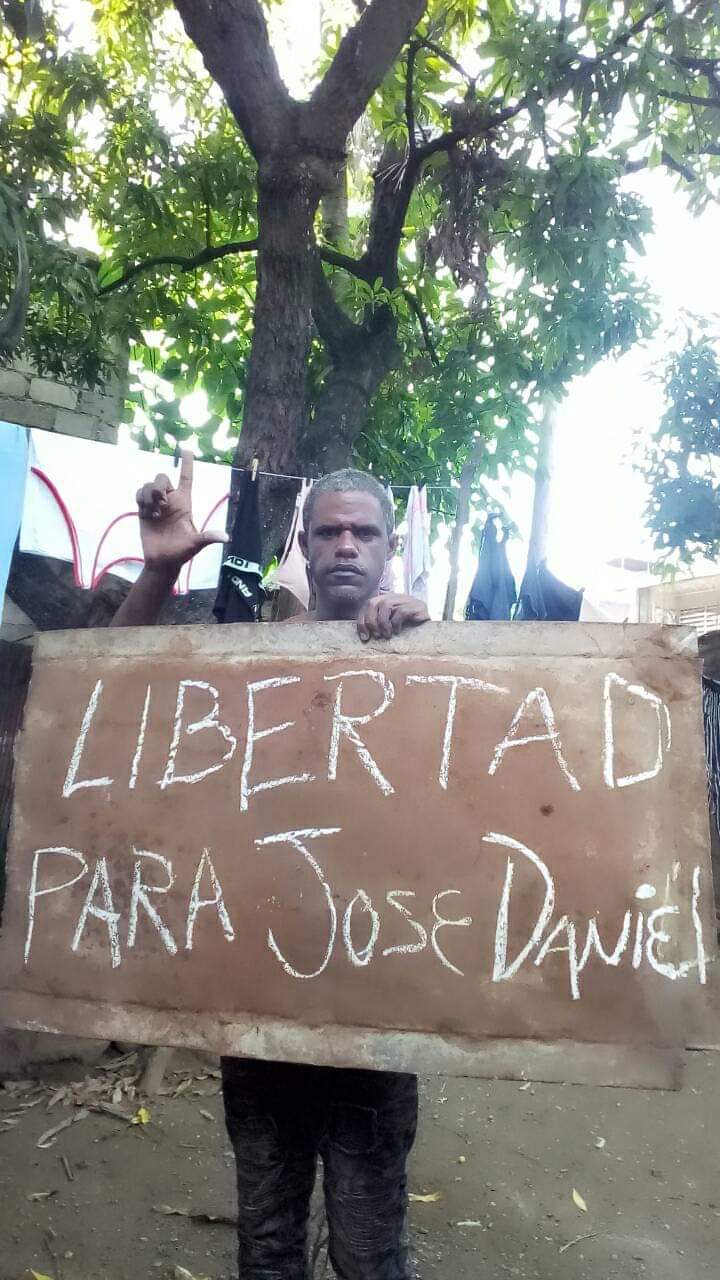 LIBERTAD
PARA JOSE DANiEl